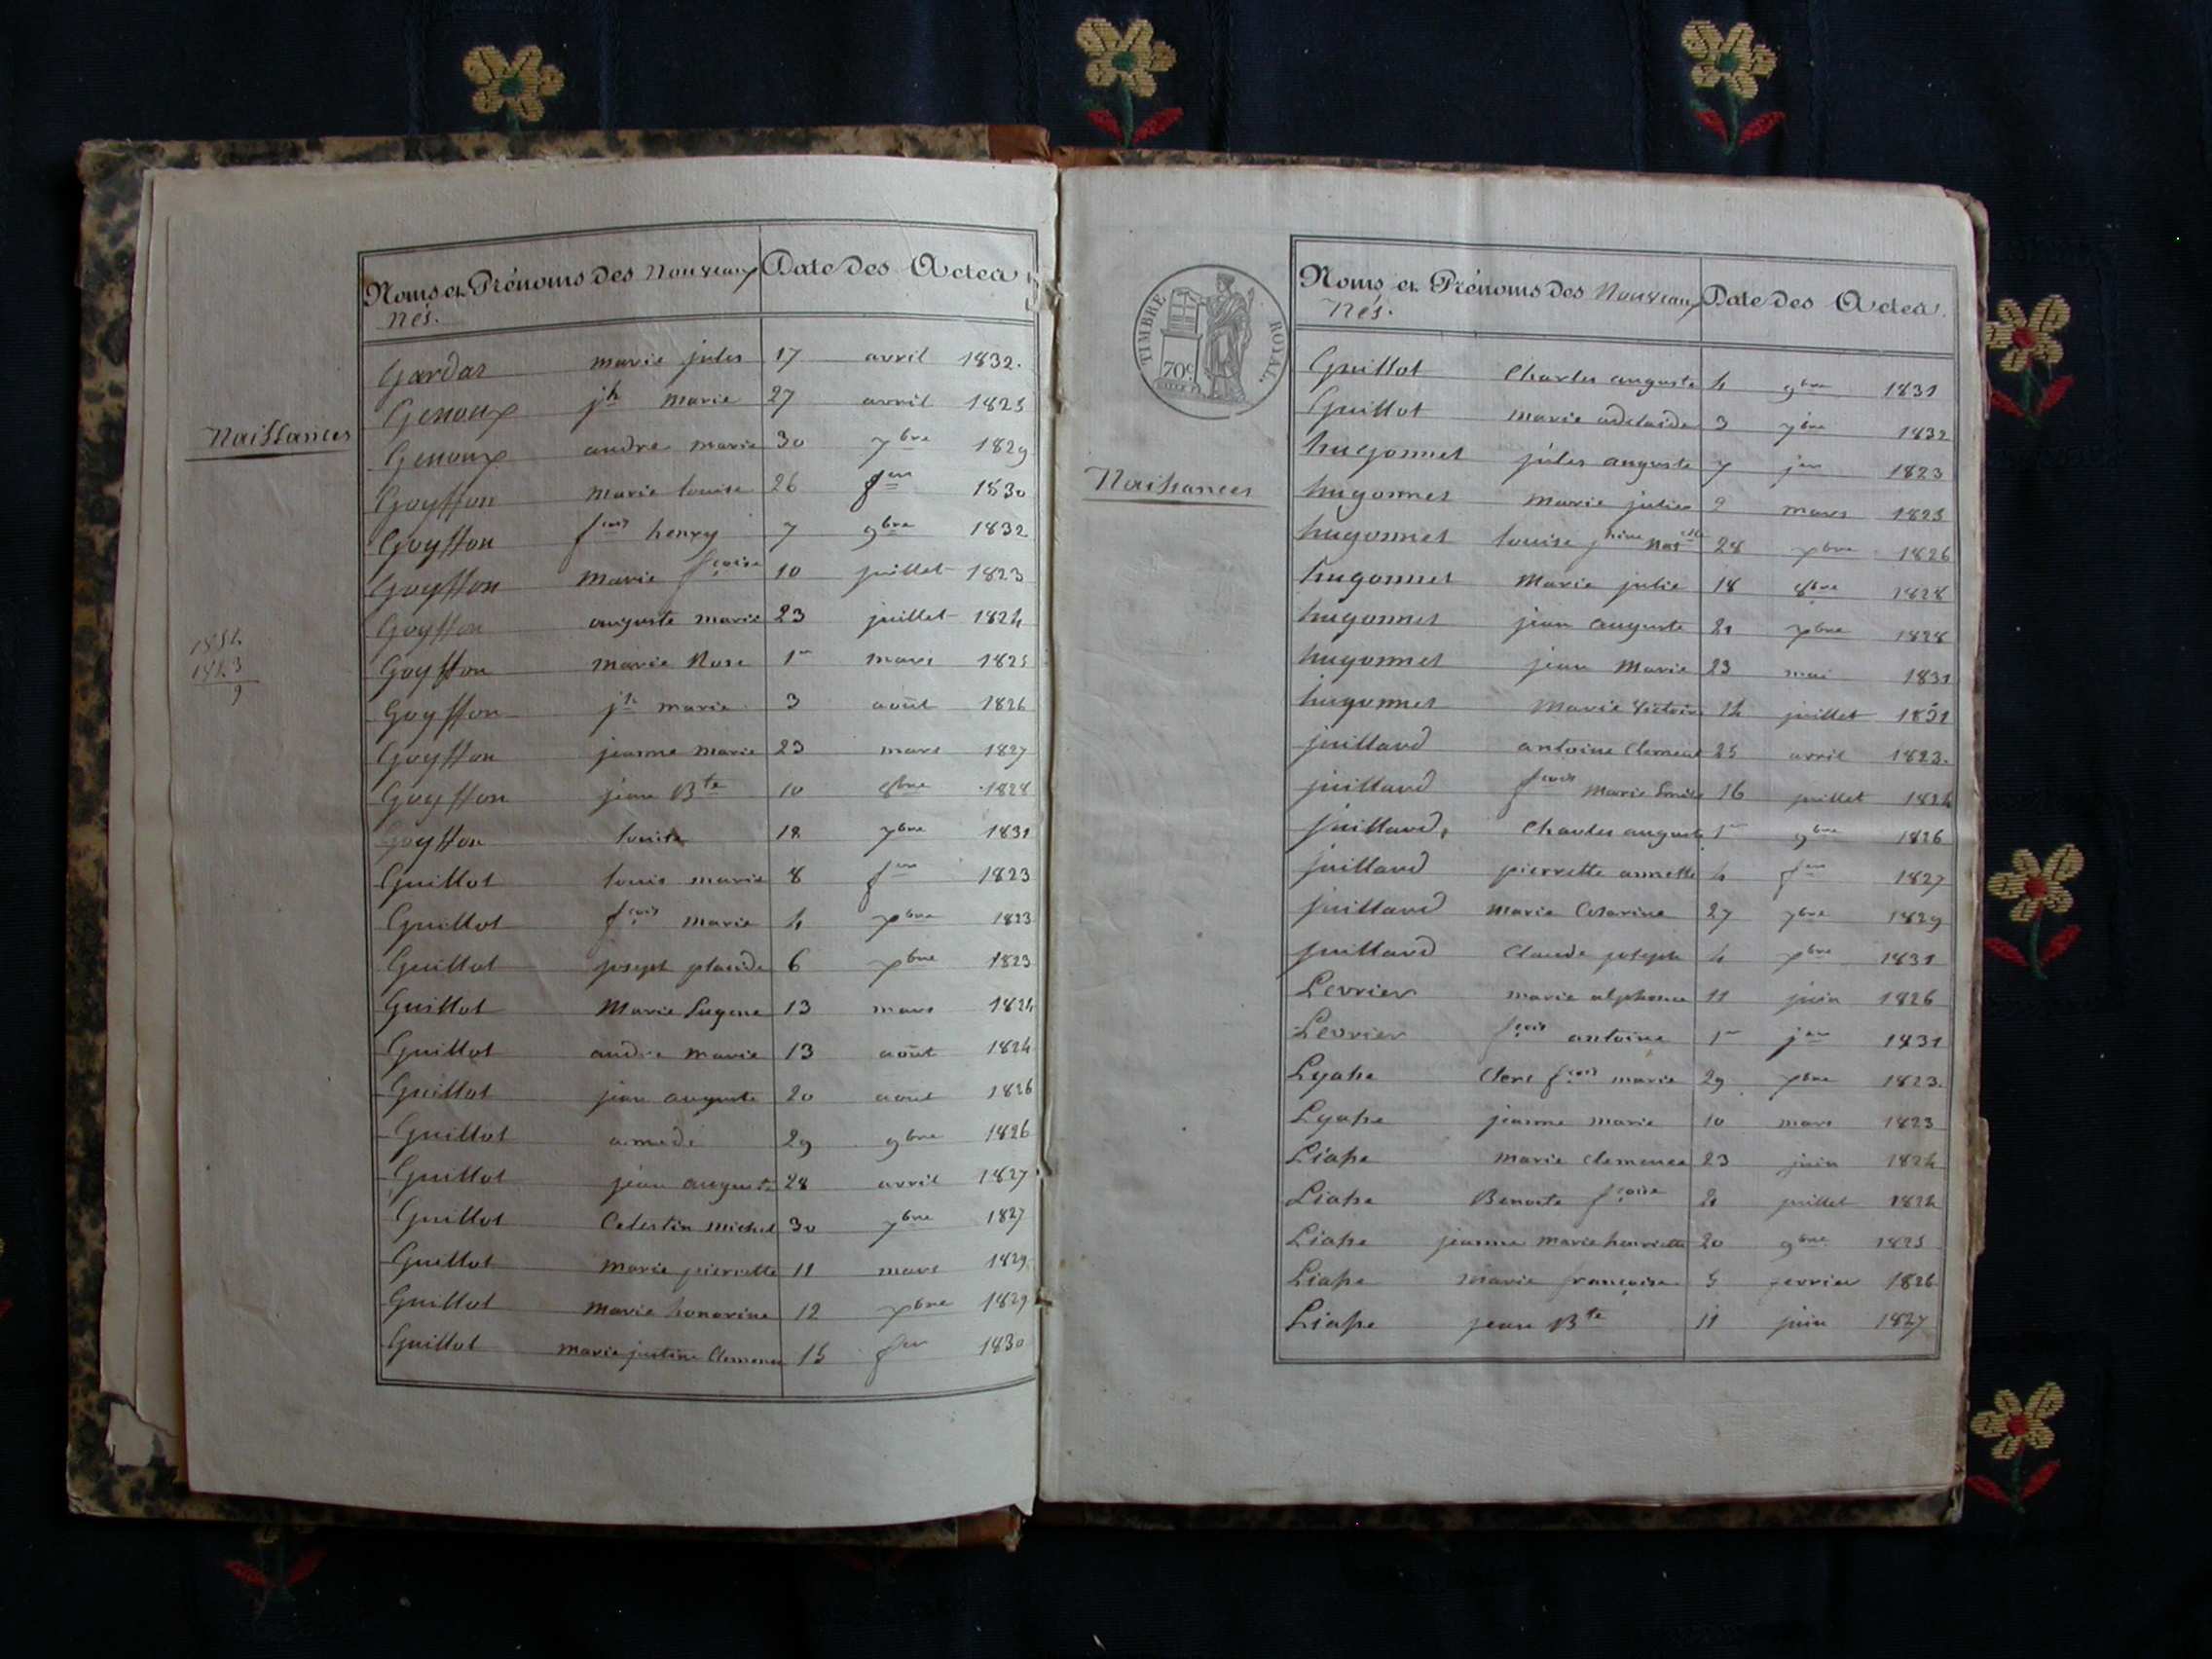 Noms et Prénoms des Nouveaux Date des Actes
Nés.
Naissances
Gardas marie jules 17 avril 1832.
Genoux jh marie 27 avril 1825
Genoux andre marie 30 7bre 1829
Goyffon marie louise 26 fer 1830
Goyffon fcois henry 7 9bre 1832
Goyffon marie fcoise 10 juillet 1823
Goyffon auguste marie 23 juillet 1824
Goyffon marie Rose 1er mars 1825
Goyffon jh marie 3 août 1826
Goyffon jeanne marie 23 mars 1827
Goyffon jean Bte 10 8bre 1828
Goyffon louise 18 7bre 1831
Guillot louis marie 8 fer 1823
Guillot fcois marie 4 xbre 1823
Guillot joseph placide 6 xbre 1823
Guillot Marie Eugene 13 mars 1824
Guillot andre marie 13 août 1824
Guillot jean auguste 20 aout 1826
Guillot amedé 29 9bre 1826
Guillot jean auguste 28 avril 1827
Guillot Celestin michel 30 7bre 1827
Guillot marie pierrette 11 mars 1829
Guillot marie honorine 12 xbre 1829
Guillot marie justine Clemence 15 fer 1830
1832
1823
9
TIMBRE ROYAL.
70c
Noms et Prénoms des Nouveaux Date des Actes.
Nés.
Naissances
Guillot Charles auguste 4 9bre 1831
Guillot marie adelaide 3 7bre 1832
hugonnet jules auguste 7 jer 1823
hugonnet marie julie 2 mars 1825
hugonnet louise 28 xbre 1826
hugonnet Marie julie 18 8bre 1828
hugonnet jean auguste 21 xbre 1828
hugonnet jean Marie 23 mai 1831
hugonnet Marie Victoire 14 juillet 1831
juillard antoine Clement 25 avril 1823.
juillard fcois Marie Emile 16 juillet 1824
juillard Charles auguste 1er 9bre 1826
juillard pierrette annette 4 fer 1827
juillard marie Cesarine 27 7bre 1829
juillard Claude joseph 4 xbre 1831
Levrier marie alphonse 11 juin 1826
Levrier fcois antoine 1er jer 1831
Lyasse Clere fcois marie 29 xbre 1823.
Lyasse jeanne marie 10 mars 1823
Liasse marie Clemence 23 juin 1824
Liasse Benoite fcoise 21 juillet 1824
Liasse jeanne marie henriette 20 9bre 1825
Liasse marie françoise 5 fevrier 1826
Liasse jean Bte 11 juin 1827